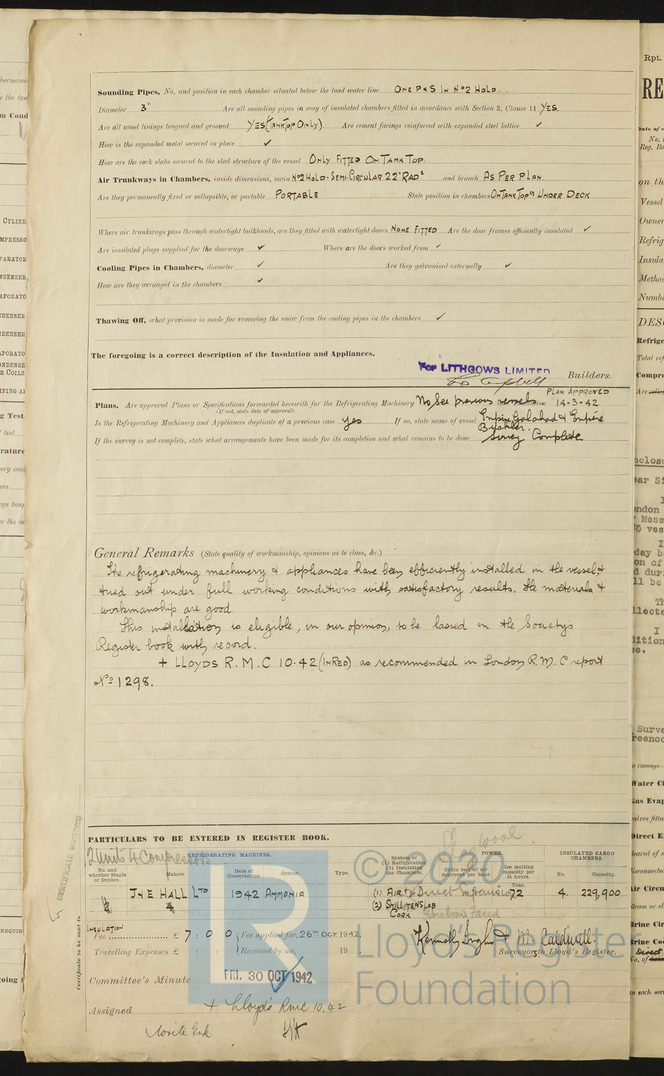 Sounding Pipes, No. and position in each chamber situated below the load water line ONE P&S IN No2 HOLD.
Diameter 3" Are all sounding pipes in way of insulated chambers fitted in accordance with Section 3, Clause 11 YES.
Are all wood linings tongued and grooved YES (TANK TOP ONLY). Are cement facings reinforced with expanded steel lattice ✓
How is the expanded metal secured in place ✓
How are the cork slabs secured to the steel structure of the vessel ONLY FITTED ON TANK TOP.
Air Trunkways in Chambers, inside dimensions, main No2 HOLD-SEMI-CIRCULAR 22" RADS and branch AS PER PLAN.
Are they permanently fixed or collapsible, or portable PORTABLE State position in chambers ON TANK TOP & UNDER DECK
Where air trunkways pass through watertight bulkheads, are they fitted with watertight doors NONE FITTED Are the door frames efficiently insulated ✓
Are insulated plugs supplied for the doorways ✓ Where are the doors worked from ✓
Cooling Pipes in Chambers, diameter ✓ Are they galvanised externally ✓
How are they arranged in the chambers ✓
Thawing Off, what provision is made for removing the snow from the cooling pipes in the chambers ✓
The foregoing is a correct description of the Insulation and Appliances.
For LITHGOWS LIMITED
Builders.
PLAN APPROVED
Plans. Are approved Plans or Specifications forwarded herewith for the Refrigerating Machinery No, See previous vessels. 14-3-42
(If not, state date of approval)
Is the Refrigerating Machinery and Appliances duplicate of a previous case yes If so, state name of vessel Empire Galahad & Empire
If the survey is not complete, state what arrangements have been made for its completion and what remains to be done Survey Complete
General Remarks (State quality of workmanship, opinions as to class, &c.)
The refrigerating machinery & appliances have been efficiently installed in the vessel &
tried out under full working conditions with satisfactory results. The materials &
workmanship are good.
This installation is eligible, in our opinion, to be classed in the Societys
Register book with record.
+ LLOYDS R.M.C 10.42 (IN RED) as recommended in London R.M.C report
No 1298.
PARTICULARS TO BE ENTERED IN REGISTER BOOK.
2 Units 4 Compressors
REFRIGERATING MACHINES.
POWER.
INSULATED CARGO
CHAMBERS.
No. and
whether Single
or Duplex.
Makers
Date of
Construction.
System.
Type.
System of
(1) Refrigerating
(2) Insulation
Ice melting
capacity per
24 hours
Tons
No.
Capacity.
J & E HALL LTD 1942 AMMONIA (1) AIR & Direct Expansion 72 4. 229,900
CORK
INSULATION
Fee £ 7 : 0 : 0 (Fee applied for, 26TH OCT 1942.
Travelling Expenses £ (Received by me, 19
Surveyors to Lloyd's Register.
Committee's Minute FRI. 30 OCT 1942
Assigned + Lloyd's RMC 10.42
© 2020
Lloyd's Register
Foundation
LR